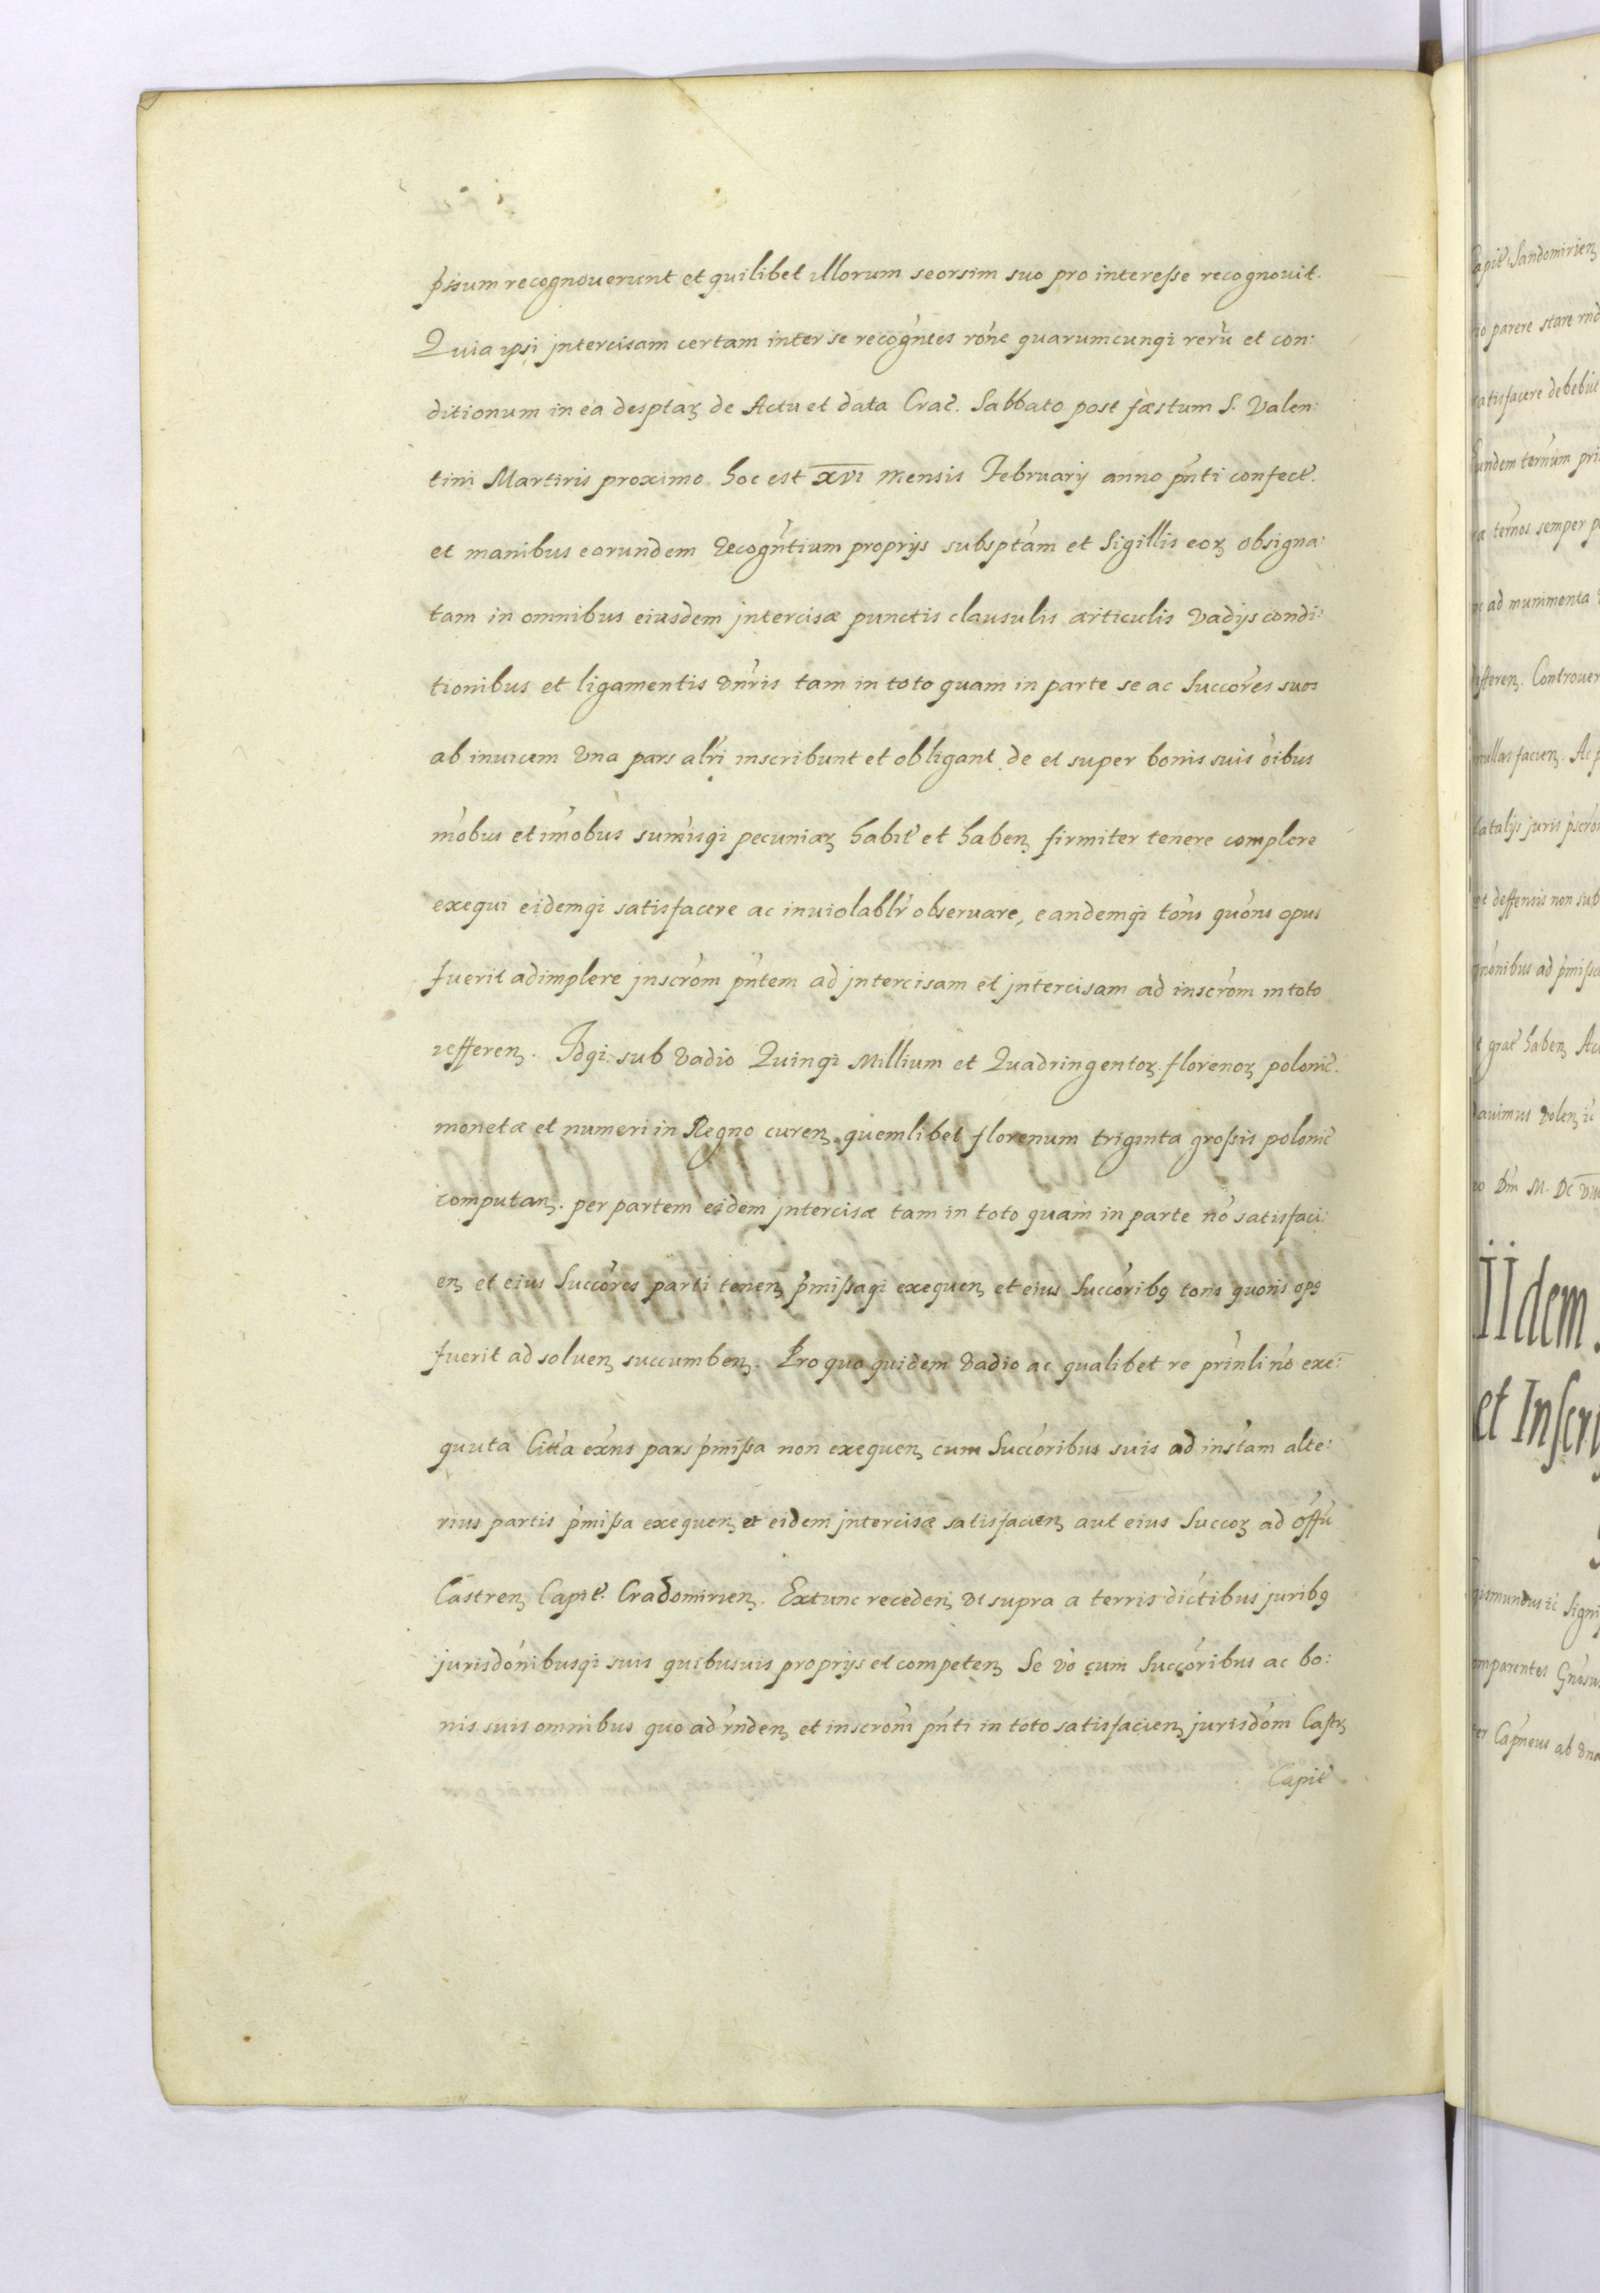 p̃ssum recognouerunt et quilibet illorum seorsim suo pro interesse recognouit.
Quia ipsi jntercisam certam inter se recogñtes rõne quarumcunqȝ rerũ et con:
ditionum in ea desptaꝝ de Actu et data Crac̃. Sabbato post fæstum S. Valen:
tini Martiris proximo hoc est XVI mensis February anno pñti confect̃.
et manibus eorundem Recogñtium proprijs subsptam et Sigillis eoꝝ obsigna:
tam in omnibus eiusdem jntercisæ punctis clausulis articulis vadijs condi:
tionibus et ligamentis vñris tam in toto quam in parte se ac Succõres suos
ab inuicem vna pars alr̃i inscribunt et obligant de et super bonis suis õibus
mõbus et im̃obus sum̃isqȝ pecuniaꝝ habit̃ et habenꝫ firmiter tenere complere
exequi eidemqȝ satisfacere ac inuiolablr̃ obseruare, eandemqȝ tõns quõns opus
fuerit adimplere jnscrõm pñtem ad jntercisam et jntercisam ad inscrõm in toto
refferenꝫ. Idqȝ sub vadio Quinqȝ Millium et Quadringentoꝝ florenoꝝ polonic̃.
monetæ et numeri in Regno curenꝫ. quemlibet florenum triginta grossis polonic̃
computanꝫ. per partem eidem jntercisæ tam in toto quam in parte nõ satisfaci:
enꝫ et eius Succõres parti tenenꝫ p̃missaqȝ exequenꝫ et eius Succõribꝯ tons quons opꝯ
fuerit ad soluenꝫ succumbenꝫ. Pro quo quidem vadio ac qualibet re prĩnli nõ exe:
quuta Citta exñs pars p̃missa non exequenꝫ cum Succõribus suis ad instãm alte:
rius partis p̃missa exequenꝫ et eidem jntercisæ satisfacienꝫ aut eius Succoꝝ ad offũ
Castrenꝫ Capit̃. Cradomirienꝫ. Extunc recedenꝫ vt supra a terris dictibus juribꝯ
jurisdõnibusqȝ suis quibusuis proprijs et competenꝫ Se võ cum Succõribus ac bo:
nis suis omnibus quo ad rñdenꝫ et inscrõni pñti in toto satisfacienꝫ jurisdõni Castrꝫ
Capit̃
apit̃. Sandomirienꝫ
parere stare
satisfacere debebũt
undem ternum
ternos semper
ad munimenta
fferenꝫ. Controuer
nullas facienꝫ. Ac
juris
deffensis non sub
ad p̃missa
grat̃ habenꝫ
volenꝫ
IIdem
et Inscri